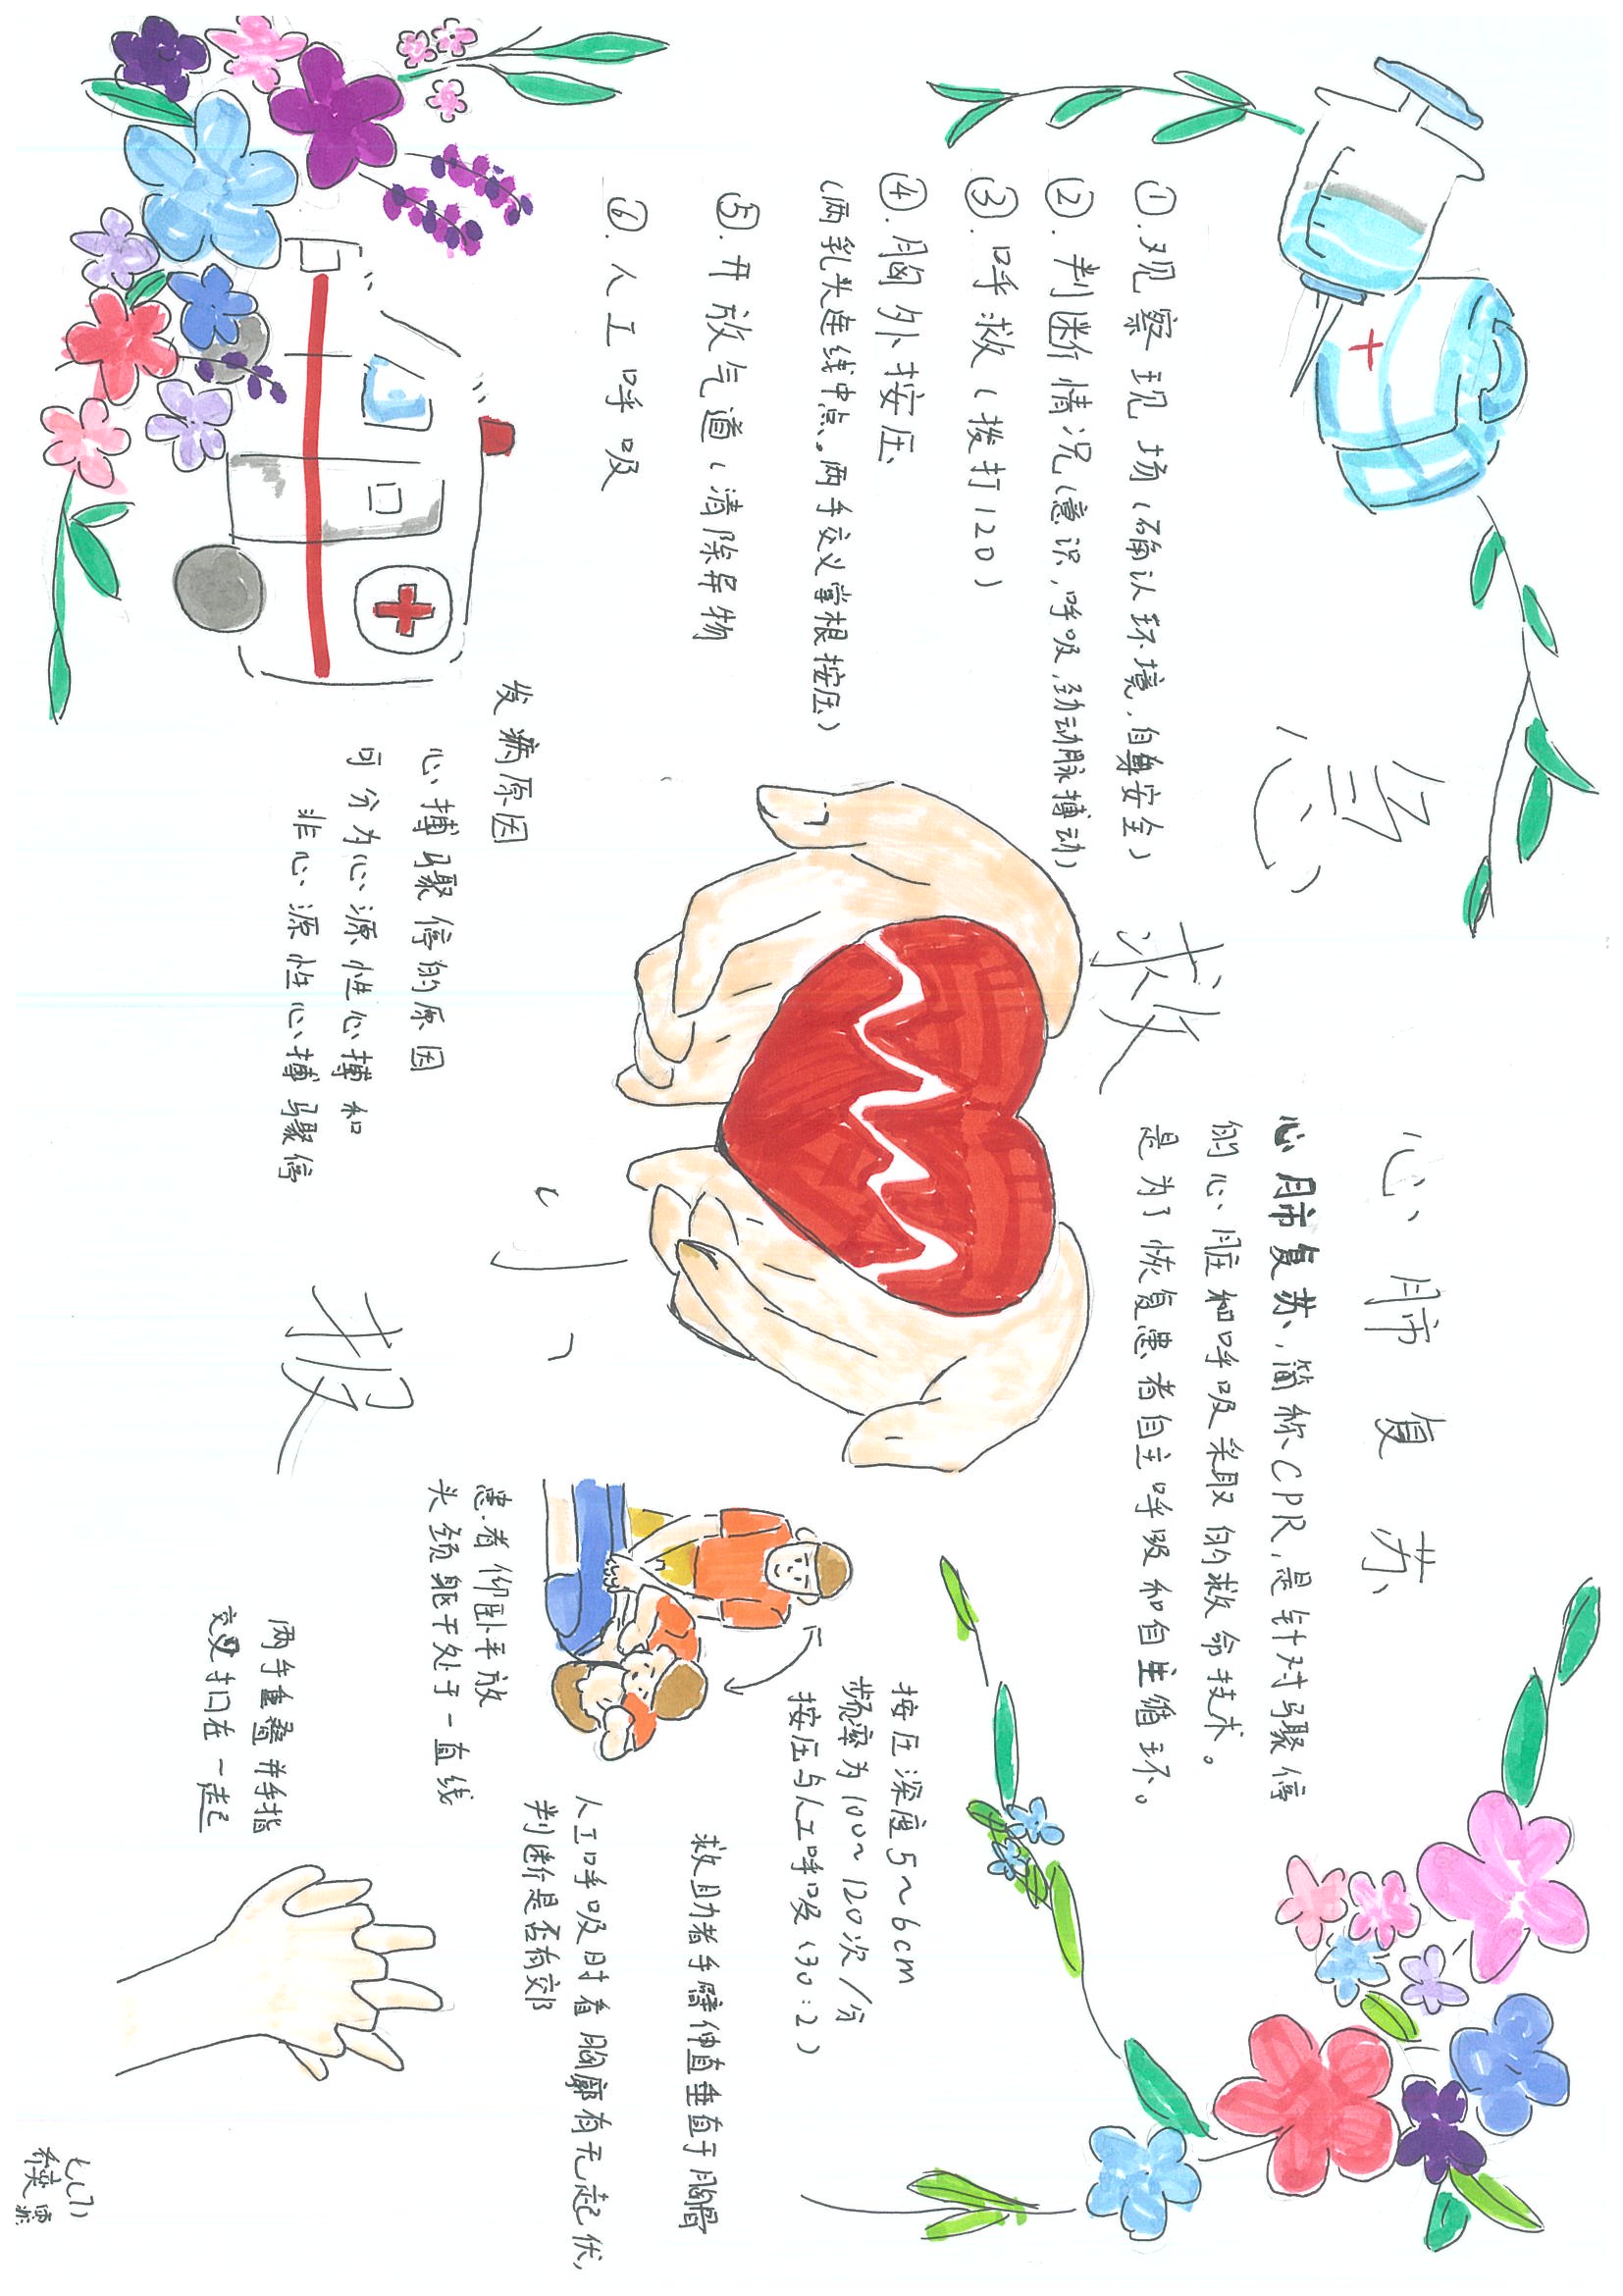 急
救
小
报
①.观察现场(确认环境,自身安全)
②.判断情况(意识,呼吸,劲动脉搏动)
③.呼救(拨打120)
④.胸外按压
(两乳头连线中点。两手交叉掌根按压)
⑤.开放气道(清除异物
⑥.人工呼吸
发病原因
心搏骤停的原因
可分为心源性心搏和
非心源性心搏骤停
心肺复苏
心肺复苏,简称CPR,是针对骤停
的心脏和呼吸采取的救命技术。
是为了恢复患者自主呼吸和自主循环。
按压深度5~6cm
频率为100~120次/分
按压与人工呼吸(30:2)
救助者手臂伸直垂直于胸骨
人工呼吸时看胸廓有无起伏,
判断是否有効
患者仰卧平放
头颈躯干处于一直线
两手重叠并手指
交叉扣在一起
七(7)